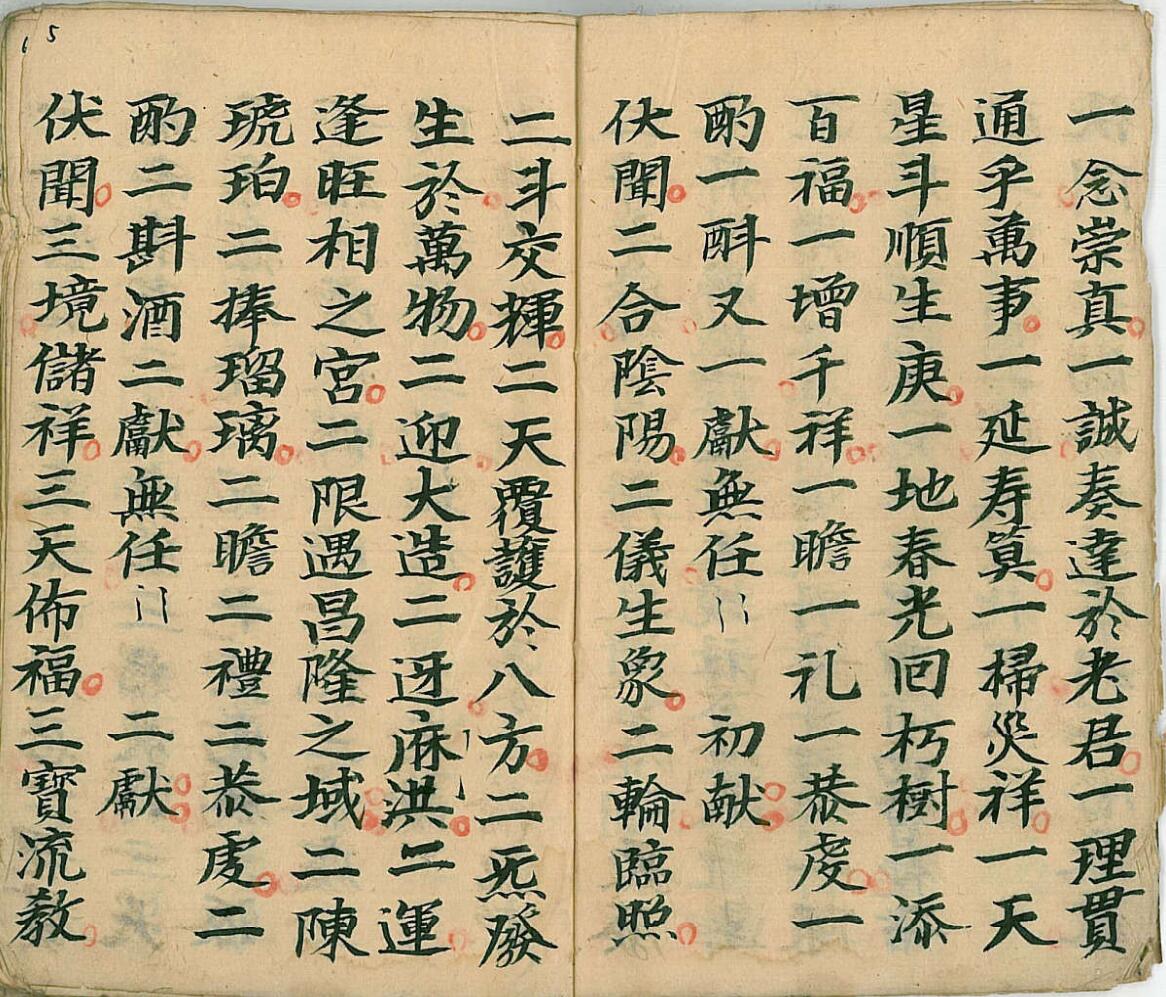 一念崇真一誠奏達於老君一理貫
通乎萬事一延寿筭一掃災祥一天
星斗順生庚一地春光回朽樹一添
百福一增千祥一瞻一礼一恭虔一
酌一斟又一獻無任〻初献
伏聞二合陰陽二儀生象二輪臨照
二斗交輝二天覆護於八方二炁發
生於萬物二迎大造二迓庥洪二運
逢旺相之宮二限遇昌隆之域二陳
琥珀二捧瑠璃二瞻二禮二恭虔二
酌二斟酒二獻無任〻二獻
伏聞三境儲祥三天佈福三寶流教
5
6